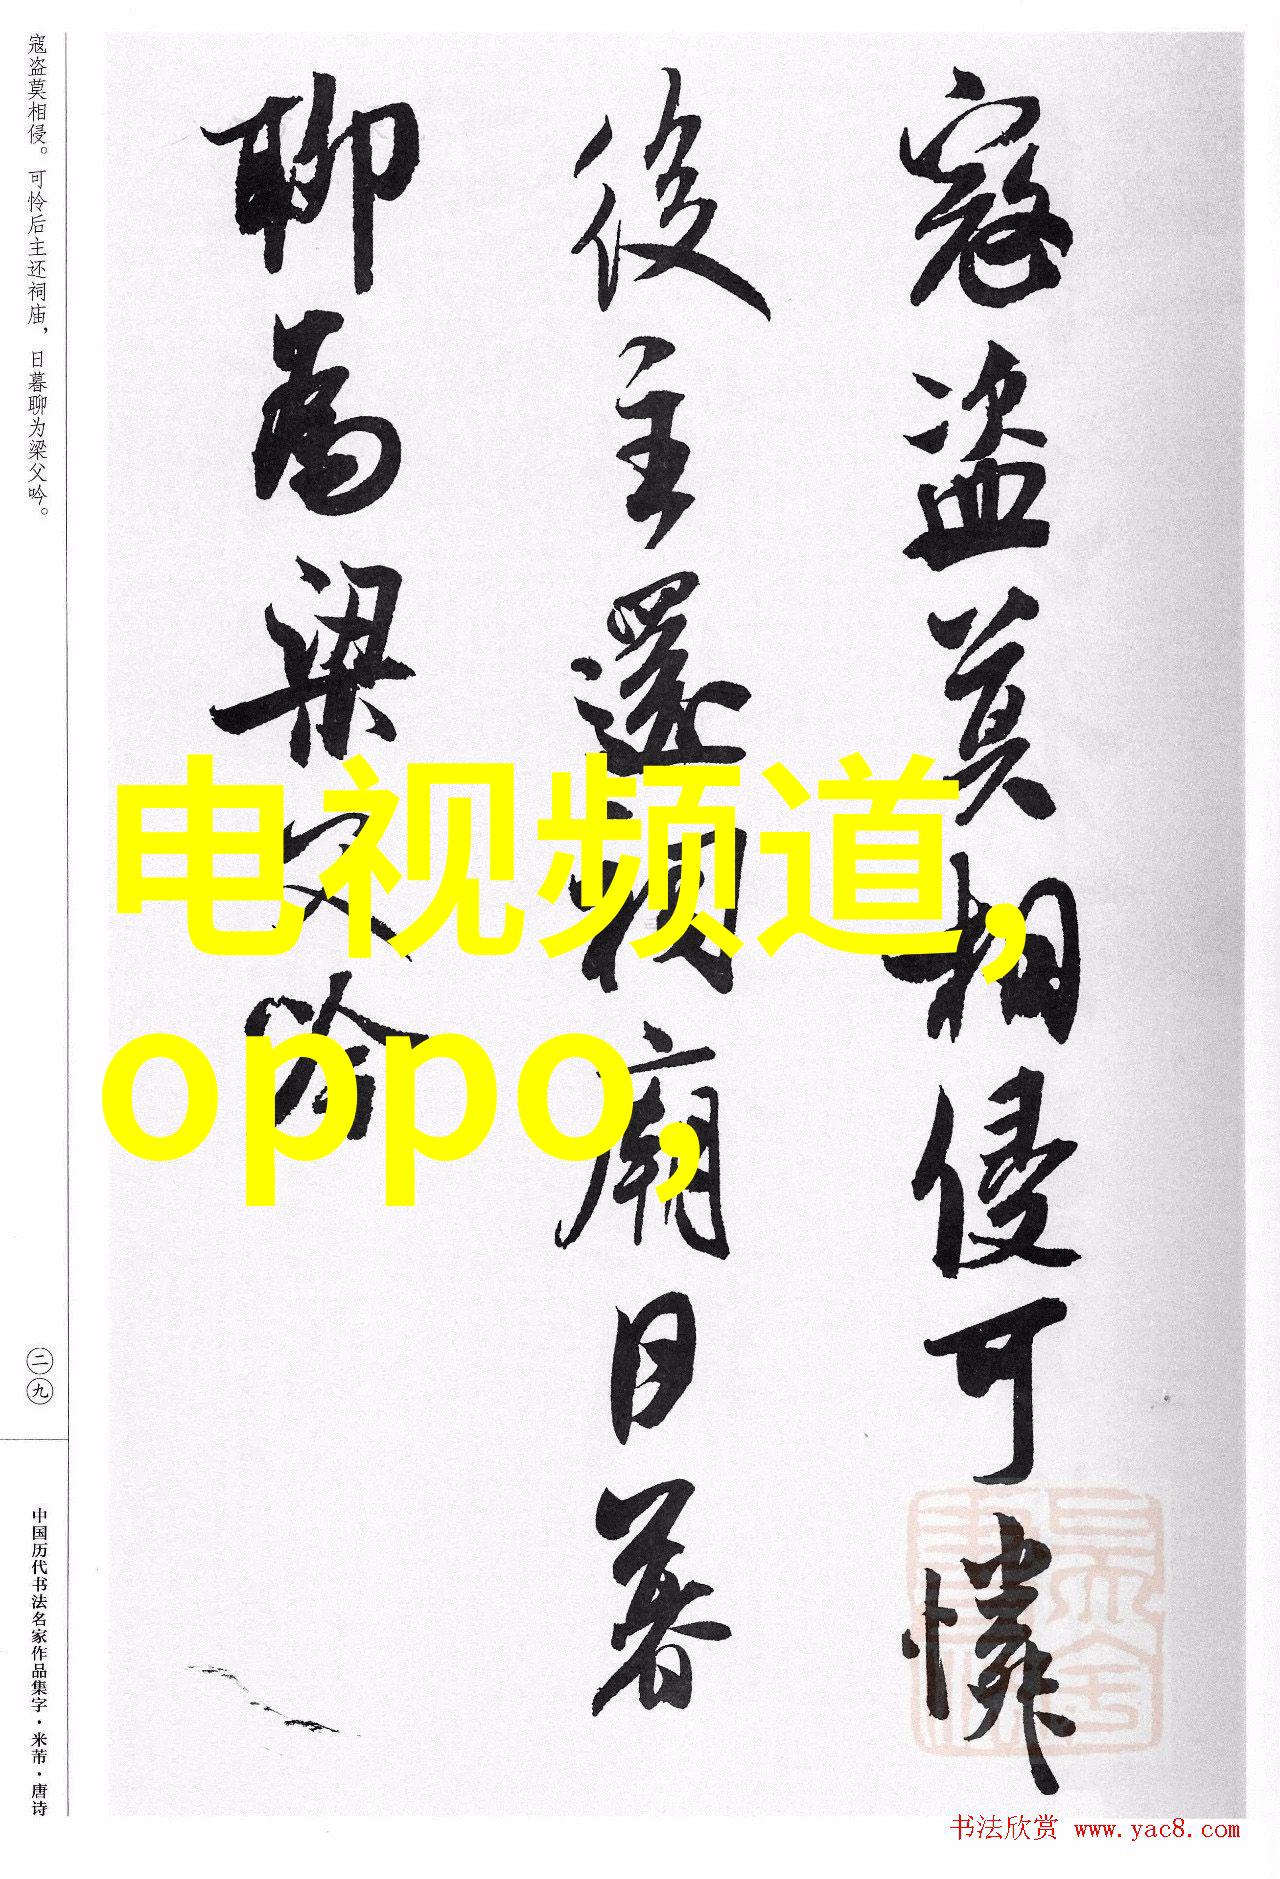 寇盗莫相侵可憐
後主還祠廟日暮
聊為梁父吟
电视频道,
oppo,
寇盗莫相侵。可怜后主还祠庙，日暮聊为梁父吟。
二九
中国历代书法名家作品集字·米芾·唐诗
书法欣赏 www.yac8.com